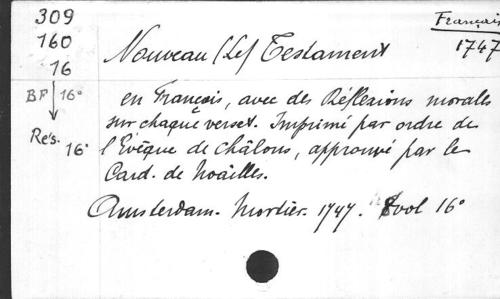 309
160
16
BF 16°
Rés. 16°
Français
1747
Nouveau (Le) Testament
en Français, avec des Réflexions morales
sur chaque verset. Imprimé par ordre de
l'Evêque de Châlons, approuvé par le
Card. de Noailles.
Amsterdam. Mortier. 1747. 8 vol 16°